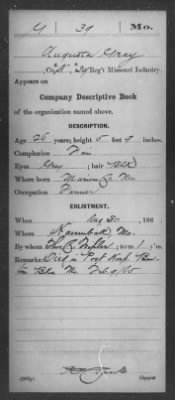 G 39 Mo.
Augusta Gray
Co. "B", 39 Reg't Missouri Infantry.
Appears on
Company Descriptive Book
of the organization named above.
DESCRIPTION.
Age 26 years; height 5 feet 9 inches.
Complexion Fair
Eyes Gray; hair Blk
Where born Marion Co Mo
Occupation Farmer
ENLISTMENT.
When Aug 30, 186
Where Hannibal, Mo.
By whom; term 1 y'rs.
Remarks: Died in Post Hosp
Mo Feb 9/65
Copyist.